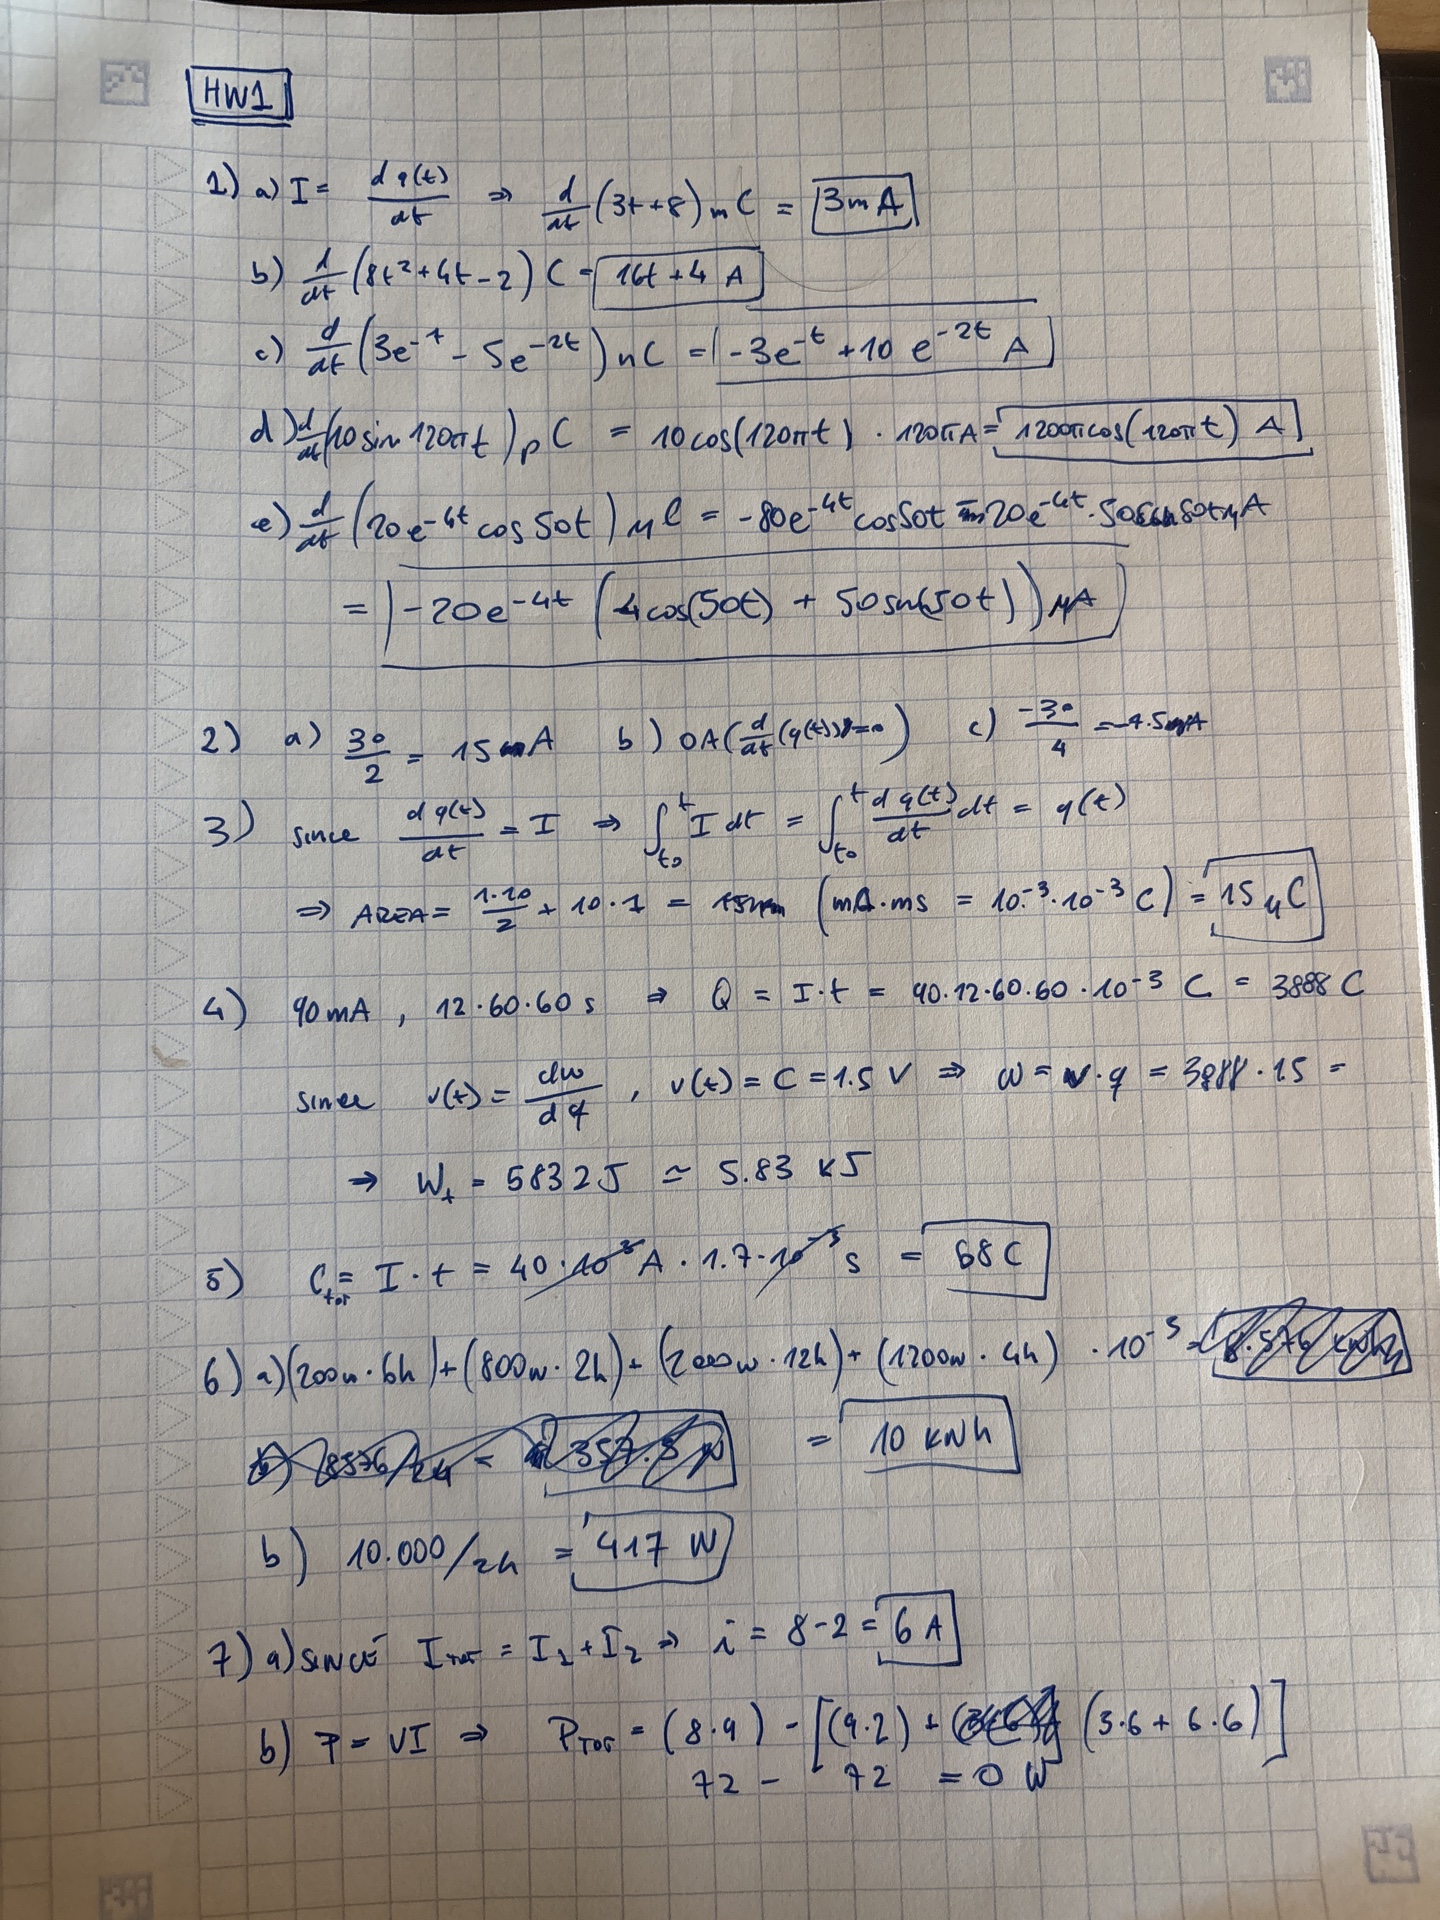 HW1
1) a) I = dq(t)/dt ⇒ d/dt (3t+8) mC = 3mA
b) d/dt (8t²+4t-2) C = 16t+4 A
c) d/dt (3e^-t - 5e^-2t) nC = -3e^-t +10 e^-2t A
d) d/dt (10 sin 120πt) pC = 10cos(120πt) · 120π A = 1200πcos(120πt) A
e) d/dt (20e^-4t cos 50t) μC = -80e^-4t cos50t - 20e^-4t · 50 sin 50t μA
= -20e^-4t (4cos(50t) + 50sin(50t)) μA
2) a) 30/2 = 15 A b) 0A (d/dt (q(t)) = 0) c) -30/4 = -7.5 A
3) since dq(t)/dt = I ⇒ ∫_t0^t I dt = ∫_t0^t dq(t)/dt dt = q(t)
⇒ AREA = 1·10/2 + 10·1 = 15 (mA·ms = 10^-3·10^-3 C) = 15 μC
4) 90mA, 12·60·60 s ⇒ Q = I·t = 90·12·60·60·10^-3 C = 3888 C
since v(t) = dw/dq, v(t) = C = 1.5 V ⇒ W = v·q = 3888·1.5 =
⇒ W_t = 5832J ≃ 5.83 kJ
5) C_tot = I·t = 40·10^3 A · 1.7·10^-3 s = 68C
6) a) (200w·6h)+(800w·2h)+(200w·12h)+(1200w·4h) ·10^-3 =
= 10 kWh
b) 10.000/24 = 417 W
7) a) SINCE I_TOT = I_1 + I_2 ⇒ i = 8-2 = 6 A
b) P = VI ⇒ P_TOT = (8·9) - [(9·2) + (3·6 + 6·6)]
72 - 72 = 0 W